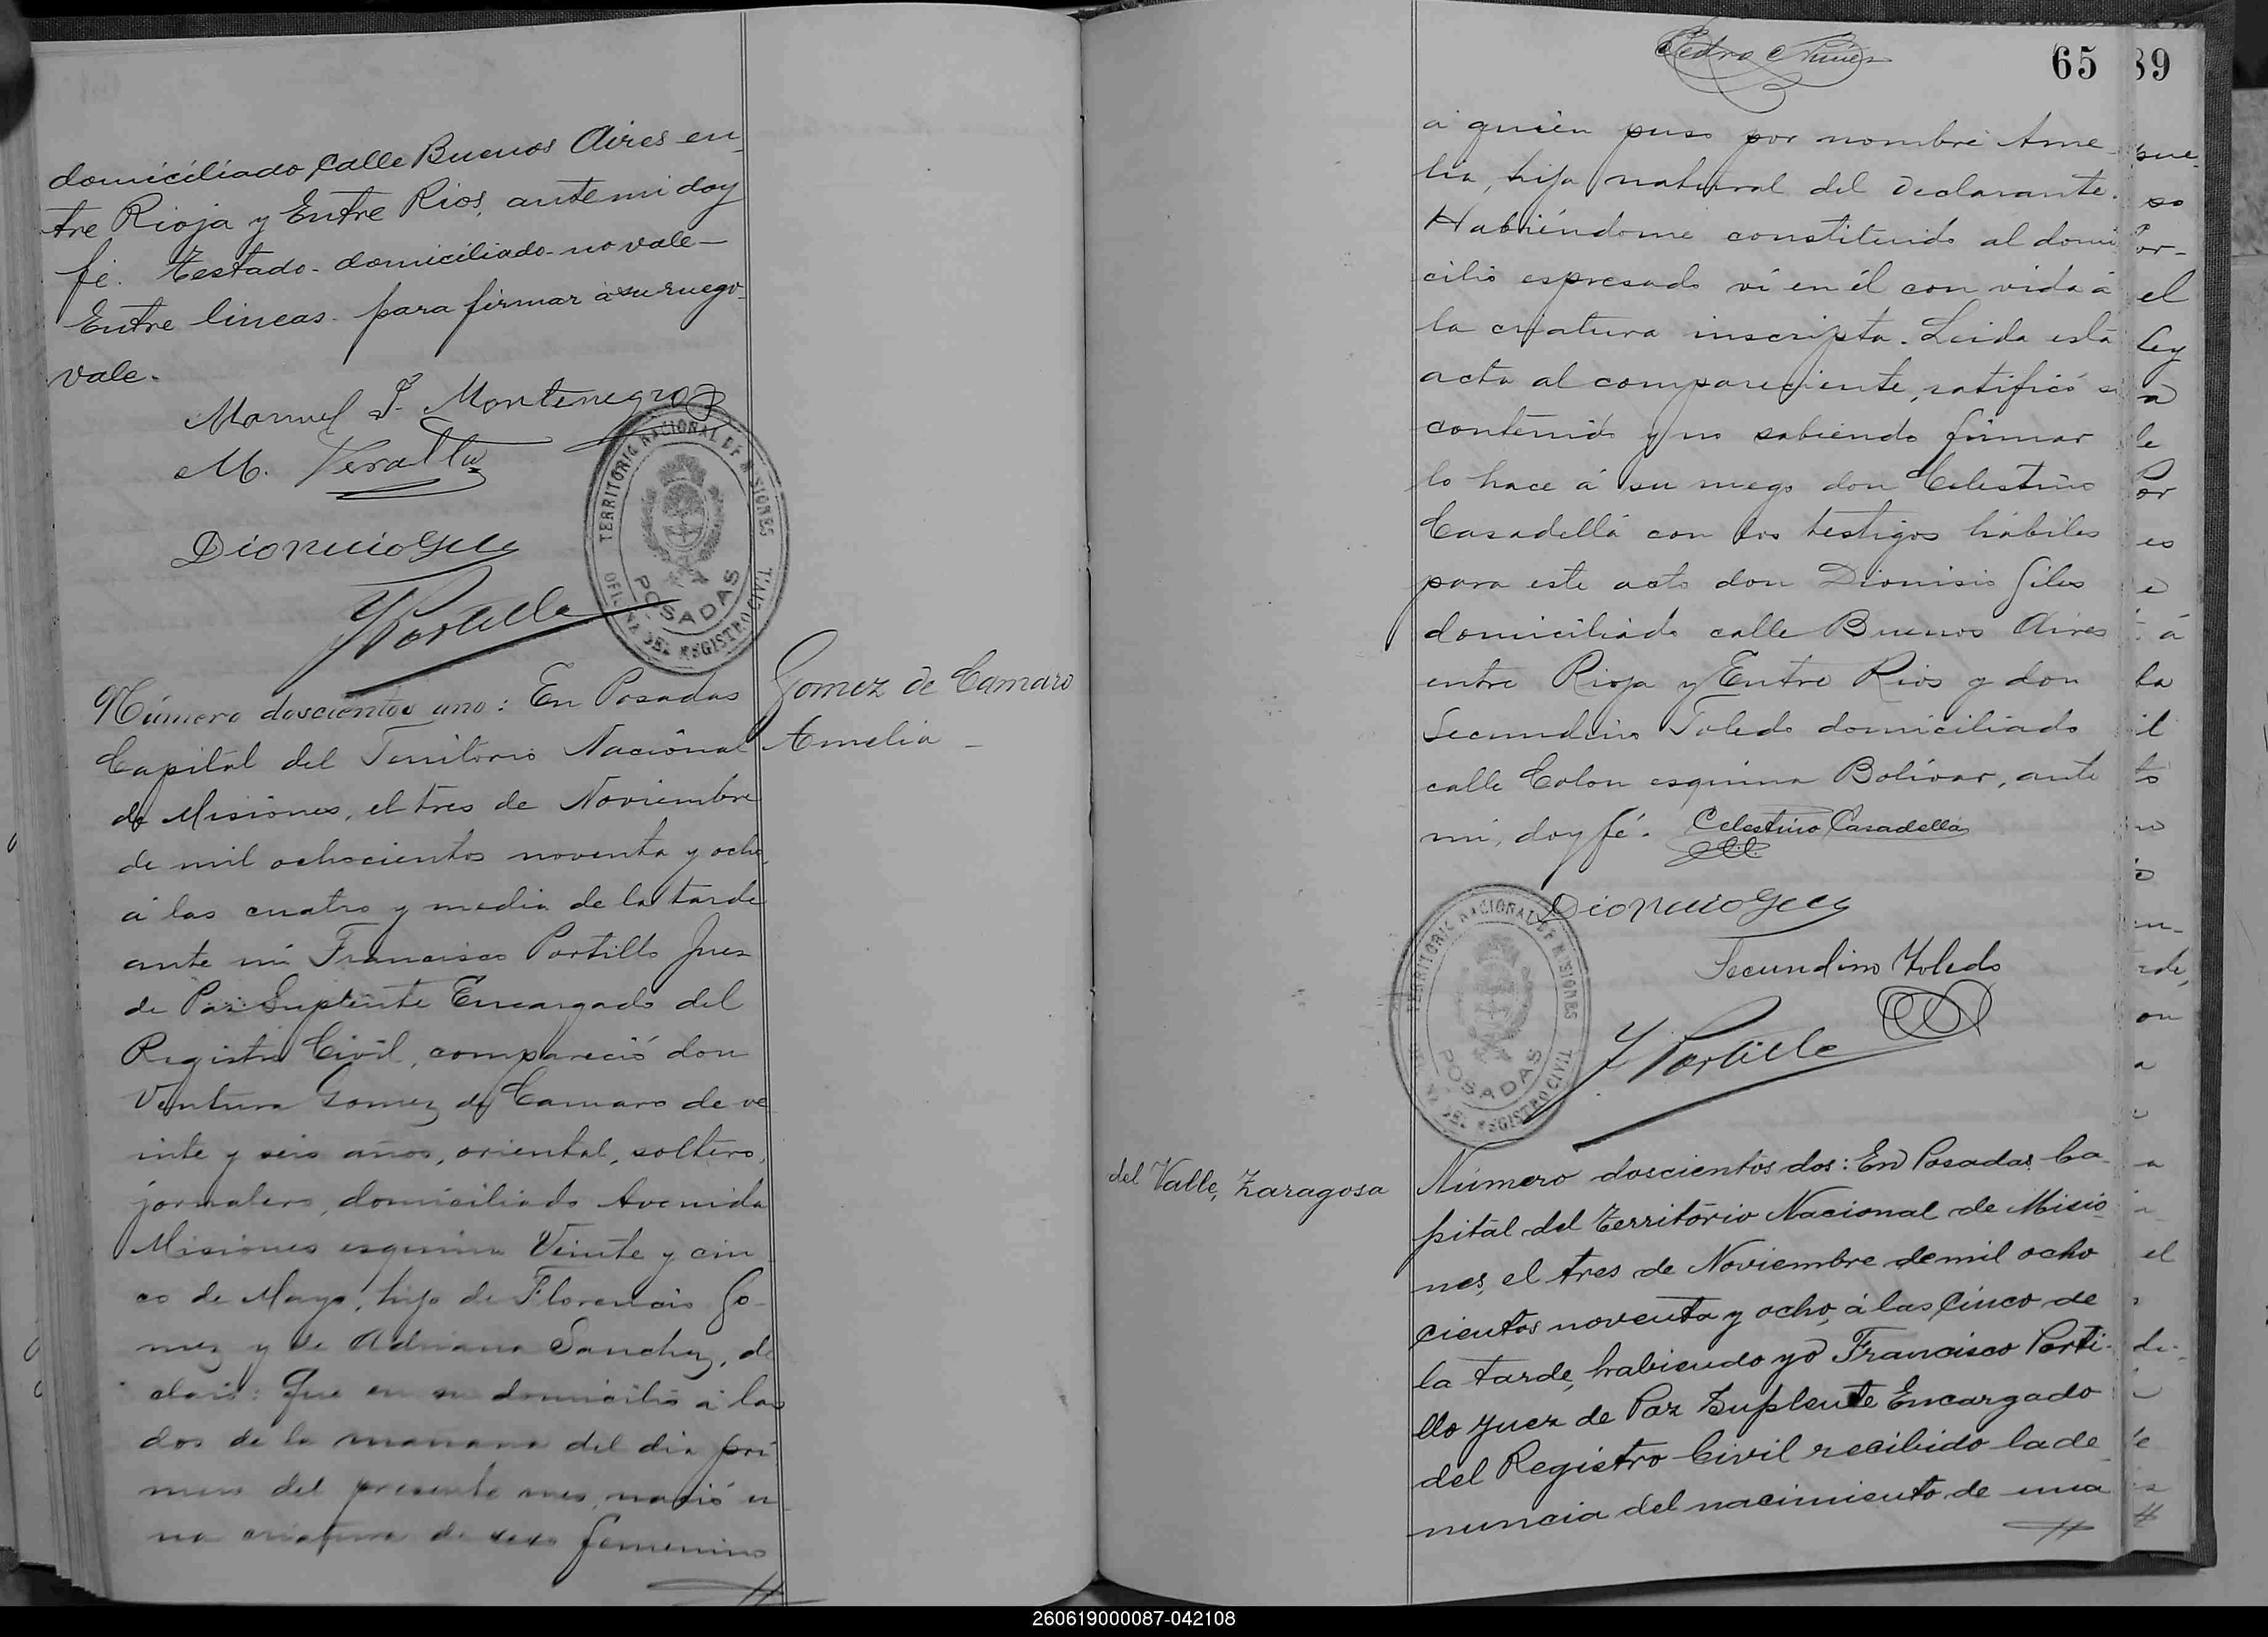 domiciliado calle Buenos Aires en
tre Rioja y Entre Rios, ante mi doy
fé. Testado - domiciliado - no vale -
Entre lineas - para firmar á su ruego -
vale.
Manuel F. Montenegro
M.
Dionicio Gele
F Portillo
TERRITORIO NACIONAL DE MISIONES
POSADAS
OFICINA DEL REGISTRO CIVIL
Gomez de Camaro
Amelia -
Número doscientos uno: En Posadas
Capital del Territorio Nacional
de Misiones, el tres de Noviembre
de mil ochocientos noventa y ocho,
á las cuatro y media de la tarde
ante mi Francisco Portillo Juez
de Paz Suplente Encargado del
Registro Civil, compareció don
Ventura Gomez de Camaro de ve
inte y seis años, oriental, soltero,
jornalero, domiciliado Avenida
Misiones esquina Veinte y cin
co de Mayo, hijo de Florencio Go-
mez y de Adriana Sanchez, de
claró: Que en su domicilio á las
dos de la manana del dia pri
mero del presente mes, nació u
na criatura de sexo femenino
Pedro Nuñez
65
89
á quien puso por nombre Ame-
lia, hija natural del declarante.
Habiéndome constituido al domi
cilio espresado ví en él con vida á
la criatura inscripta. Leida esta
acta al compareciente, ratificó su
contenido y no sabiendo firmar
lo hace á su ruego don Celestino
Casadellá con los testigos hábiles
para este acto don Dionisio Giles
domiciliado calle Buenos Aires
entre Rioja y Entre Rios y don
Secundino Toledo domiciliado
calle Colon esquina Bolívar, ante
mi, doy fé. Celestino Casadellá
Dionicio Gele
Secundino Toledo
F Portillo
TERRITORIO NACIONAL DE MISIONES
POSADAS
OFICINA DEL REGISTRO CIVIL
del Valle, Zaragosa
Número doscientos dos: En Posadas Ca-
pital del Territorio Nacional de Misio
nes, el tres de Noviembre de mil ocho
cientos noventa y ocho, á las cinco de
la tarde, habiendo yo Francisco Porti-
llo Juez de Paz Suplente Encargado
del Registro Civil recibido la de
nuncia del nacimiento de una
260619000087-042108